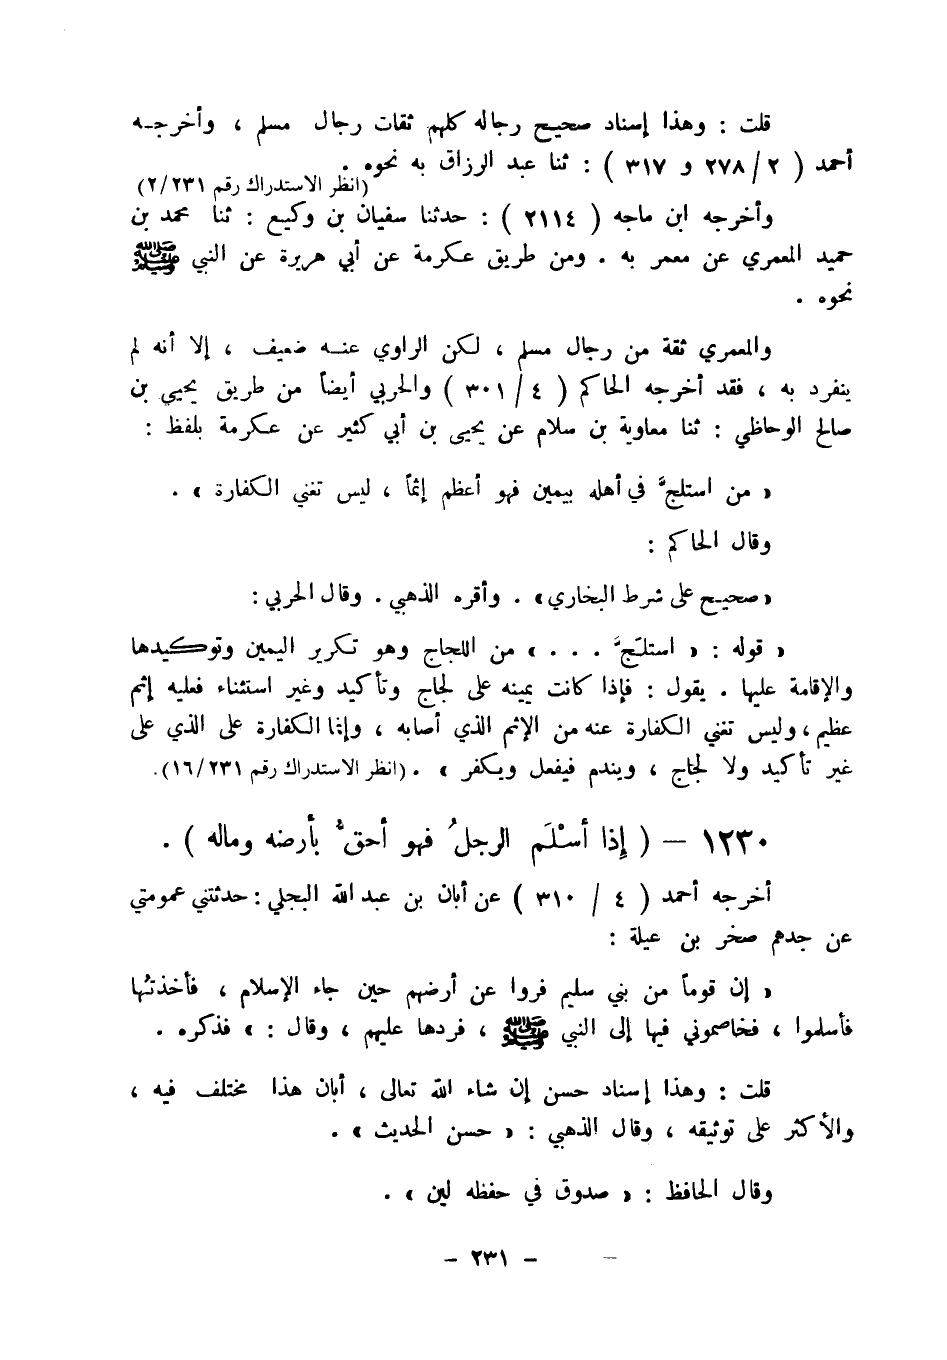 قلت : وهذا إسناد صحيح رجاله كلهم ثقات رجال مسلم ، وأخرجـه
أحمد ( ٢ / ٢٧٨ و ٣١٧ ) : ثنا عبد الرزاق به نحوه .
(انظر الاستدراك رقم ٢/٢٣١)
وأخرجه ابن ماجه ( ٢١١٤ ) : حدثنا سفيان بن وكيع : ثنا محمد بن
حميد المعمري عن معمر به . ومن طريق عكرمة عن أبي هريرة عن النبي ﷺ
نحوه .
والمعمري ثقة من رجال مسلم ، لكن الراوي عنـه ضعيف ، إلا أنه لم
ينفرد به ، فقد أخرجه الحاكم ( ٤ / ٣٠١ ) والحربي أيضاً من طريق يحيى بن
صالح الوحاظي : ثنا معاوية بن سلام عن يحيى بن أبي كثير عن عكرمة بلفظ :
« من استلجَّ في أهله بيمين فهو أعظم إثماً ، ليس تغني الكفارة » .
وقال الحاكم :
« صحيح على شرط البخاري » . وأقره الذهبي . وقال الحربي :
« قوله : « استلَجَّ . . . » من اللجاج وهو تكرير اليمين وتوكيدها
والإقامة عليها . يقول : فإذا كانت يمينه على لجاج وتأكيد وغير استثناء فعليه إثم
عظيم ، وليس تغني الكفارة عنه من الإثم الذي أصابه ، وإنما الكفارة على الذي على
غير تأكيد ولا لجاج ، ويندم فيفعل ويكفر » . (انظر الاستدراك رقم ١٦/٢٣١).
١٢٣٠ – ( إذا أسْلَم الرجلُ فهو أحقُّ بأرضه وماله ) .
أخرجه أحمد ( ٤ / ٣١٠ ) عن أبان بن عبد الله البجلي : حدثتني عمومتي
عن جدهم صخر بن عيلة :
« إن قوماً من بني سليم فروا عن أرضهم حين جاء الإسلام ، فأخذتُها
فأسلموا ، فخاصموني فيها إلى النبي ﷺ ، فردها عليهم ، وقال : » فذكره .
قلت : وهذا إسناد حسن إن شاء الله تعالى ، أبان هذا مختلف فيه ،
والأكثر على توثيقه ، وقال الذهبي : « حسن الحديث » .
وقال الحافظ : « صدوق في حفظه لين » .
– ٢٣١ –